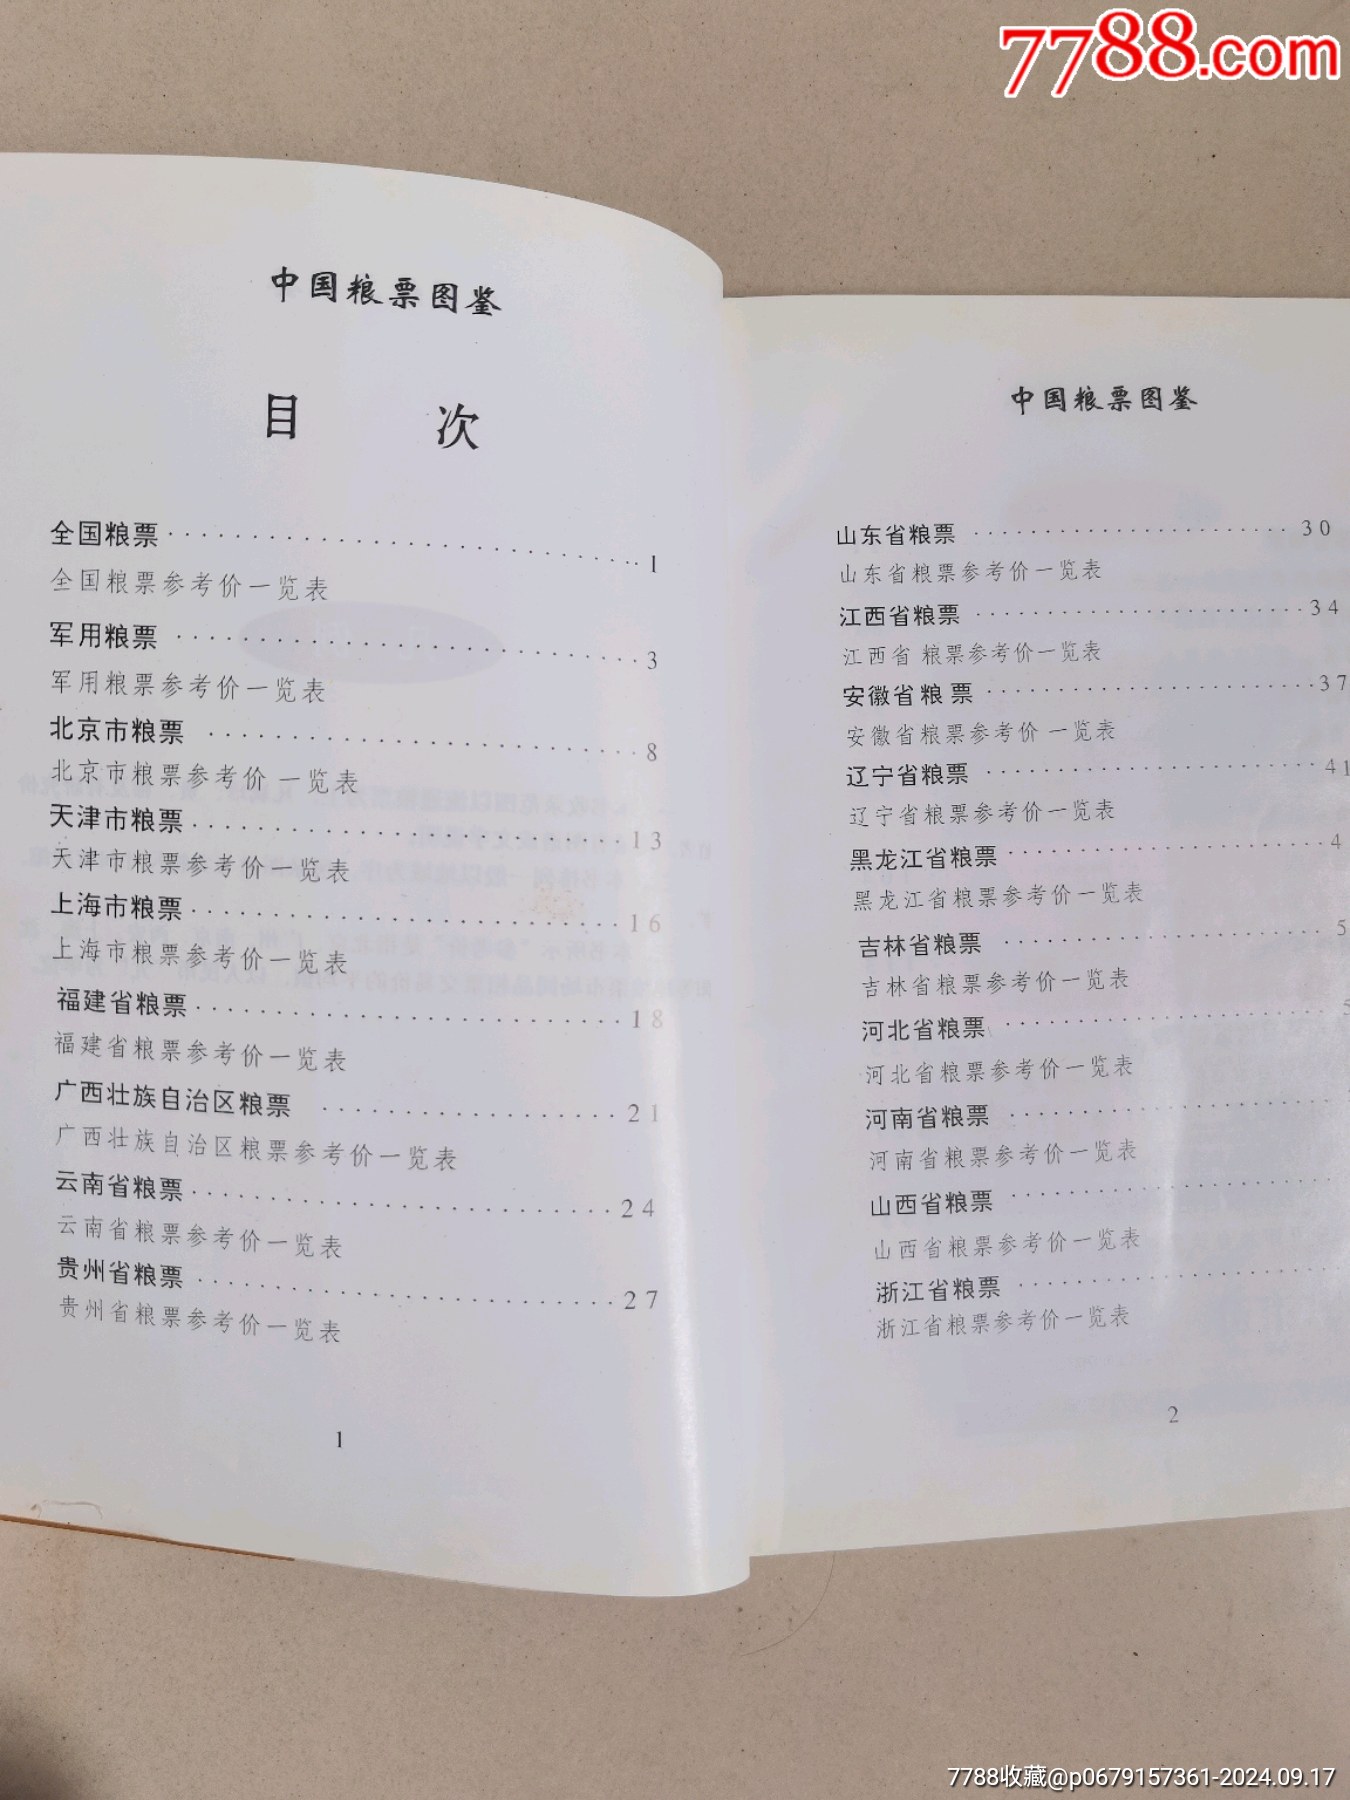 7788.com
中国粮票图鉴
目 次
全国粮票 1
全国粮票参考价一览表
军用粮票 3
军用粮票参考价一览表
北京市粮票 8
北京市粮票参考价一览表
天津市粮票 13
天津市粮票参考价一览表
上海市粮票 16
上海市粮票参考价一览表
福建省粮票 18
福建省粮票参考价一览表
广西壮族自治区粮票 21
广西壮族自治区粮票参考价一览表
云南省粮票 24
云南省粮票参考价一览表
贵州省粮票 27
贵州省粮票参考价一览表
1
中国粮票图鉴
山东省粮票 30
山东省粮票参考价一览表
江西省粮票 34
江西省粮票参考价一览表
安徽省粮票 37
安徽省粮票参考价一览表
辽宁省粮票 41
辽宁省粮票参考价一览表
黑龙江省粮票 4
黑龙江省粮票参考价一览表
吉林省粮票 5
吉林省粮票参考价一览表
河北省粮票
河北省粮票参考价一览表
河南省粮票
河南省粮票参考价一览表
山西省粮票
山西省粮票参考价一览表
浙江省粮票
浙江省粮票参考价一览表
2
7788收藏@p0679157361-2024.09.17